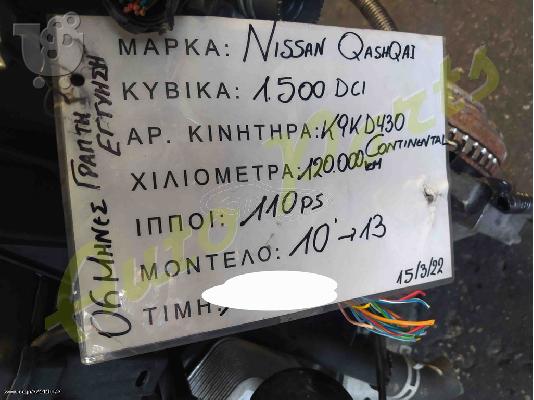 ΜΑΡΚΑ: NISSAN QASHQAI
ΚΥΒΙΚΑ: 1.500 DCI
ΑΡ. ΚΙΝΗΤΗΡΑ: K9KD430
CONTINENTAL
ΧΙΛΙΟΜΕΤΡΑ: 120.000 KM
ΙΠΠΟΙ: 110 PS
ΜΟΝΤΕΛΟ: 10' → 13
ΤΙΜΗ:
15/3/22
06 ΜΗΝΕΣ ΓΡΑΠΤΗ
ΕΓΓΥΗΣΗ
Auto Parts